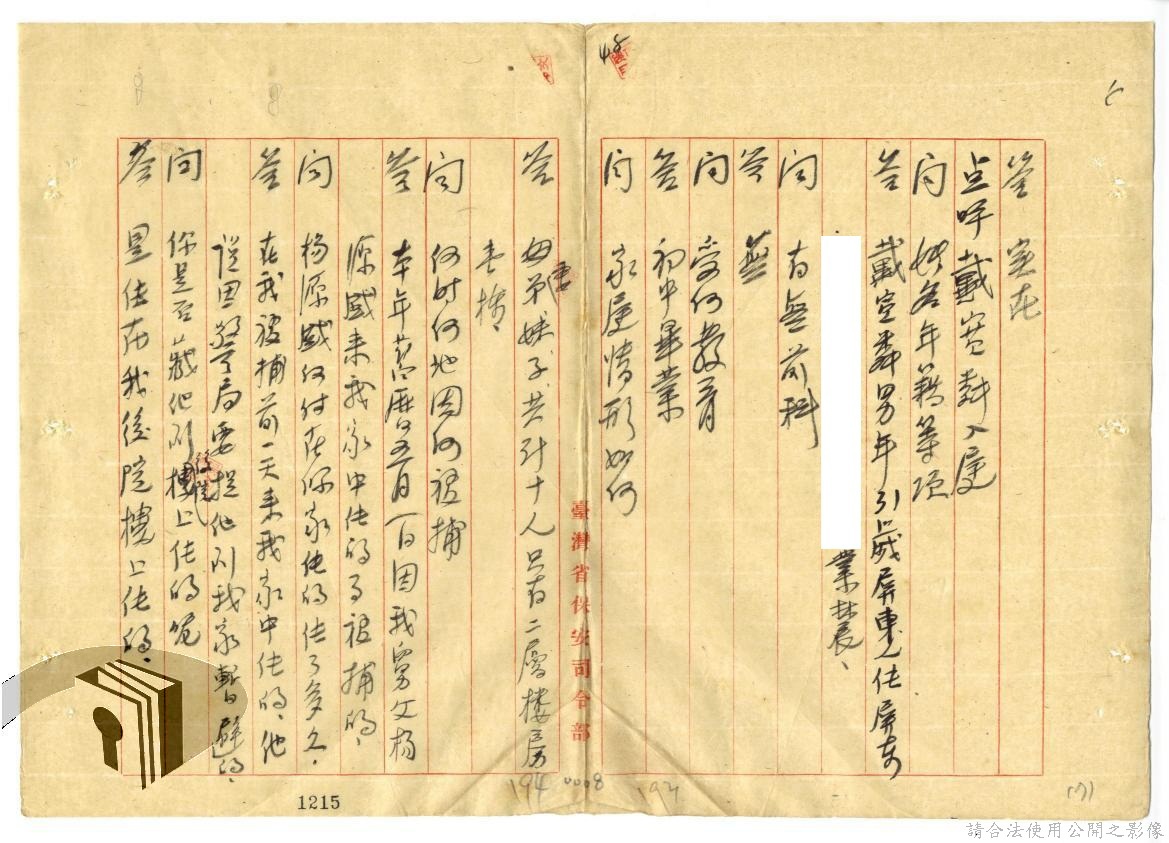 答 實在
点呼戴雲鄰入庭
問 姓名年籍等項
答 戴雲鄰男年 31 歲屏東人住屏東
業農、
問 有無前科
答 無
問 受何教育
答 初中畢業
問 家庭情形如何
臺灣省保安司令部
答 母弟妻妹子共計十人只有二層樓房
壱棟
問 何時何地因何被捕
答 本年舊曆五月一日因我舅父楊
源盛来我家中住的而被捕的、
問 楊源盛何时在你家住的住了多久、
答 在我被捕前一天来我家中住的、他
說因警局要捉他到我家暫避的、
問 你是否藏他到後院樓上住的呢
答 是住在我後院樓上住的、
48
194 0008 193
1215
請合法使用公開之影像